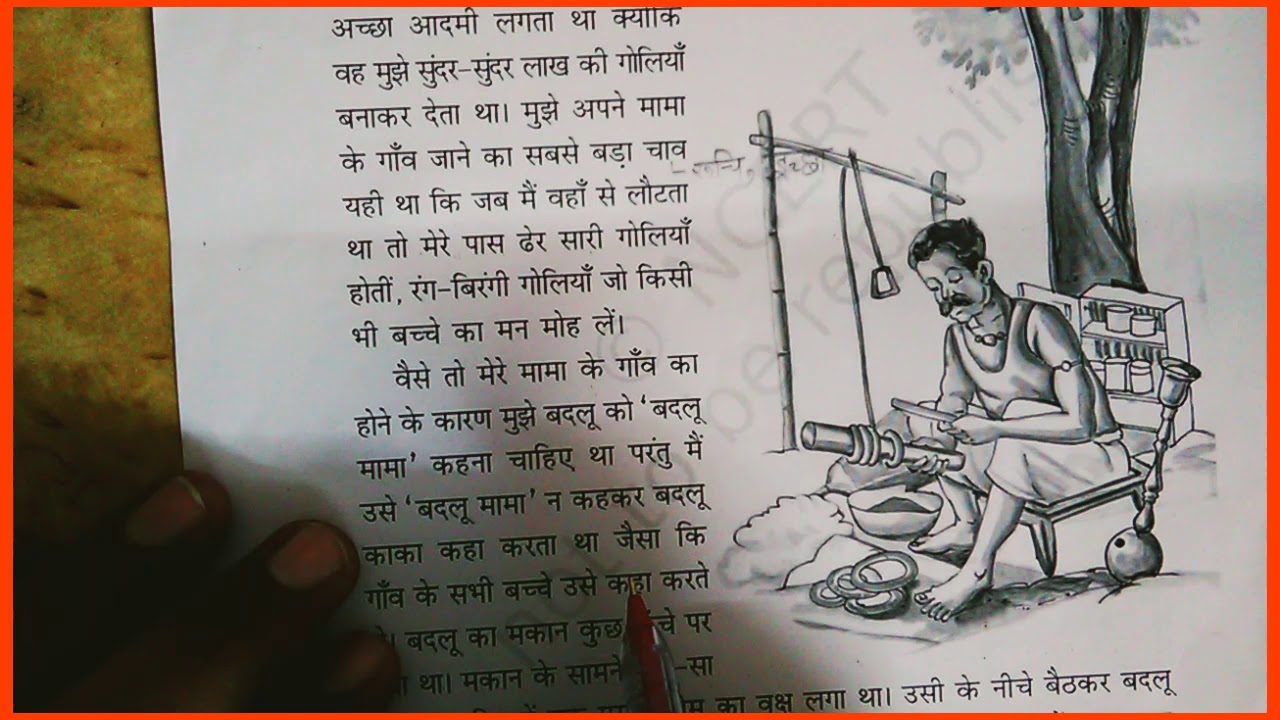 अच्छा आदमी लगता था क्योंकि
वह मुझे सुंदर-सुंदर लाख की गोलियाँ
बनाकर देता था। मुझे अपने मामा
के गाँव जाने का सबसे बड़ा चाव
यही था कि जब मैं वहाँ से लौटता
था तो मेरे पास ढेर सारी गोलियाँ
होतीं, रंग-बिरंगी गोलियाँ जो किसी
भी बच्चे का मन मोह लें।
वैसे तो मेरे मामा के गाँव का
होने के कारण मुझे बदलू को ‘बदलू
मामा’ कहना चाहिए था परंतु मैं
उसे ‘बदलू मामा’ न कहकर बदलू
काका कहा करता था जैसा कि
गाँव के सभी बच्चे उसे कहा करते
बदलू का मकान कुछ पर
था। मकान के सामने -सा
का वृक्ष लगा था। उसी के नीचे बैठकर बदलू
© NCERT
not to be republis